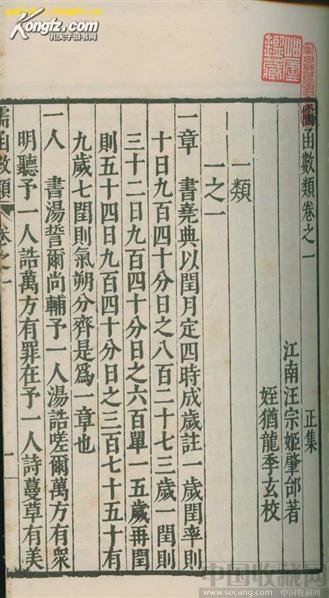 Kongfz.com
孔夫子旧书网
岫廬
鑑藏
儒函數類卷之一
正集
江南汪宗姬肇郃著
姪猶龍季玄校
一類
一之一
一章　書堯典以閏月定四時成歲註一歲閏率則
十日九百四十分日之八百二十七三歲一閏則
三十二日九百四十分日之六百單一五歲再閏
則五十四日九百四十分日之三百七十五十有
九歲七閏則氣朔分齊是爲一章也
一人　書湯誓爾尚輔予一人湯誥嗟爾萬方有衆
明聽予一人誥萬方有罪在予一人詩蔓草有美
儒函數類　卷之一
中国收藏网
www.socang.com 中国收藏网